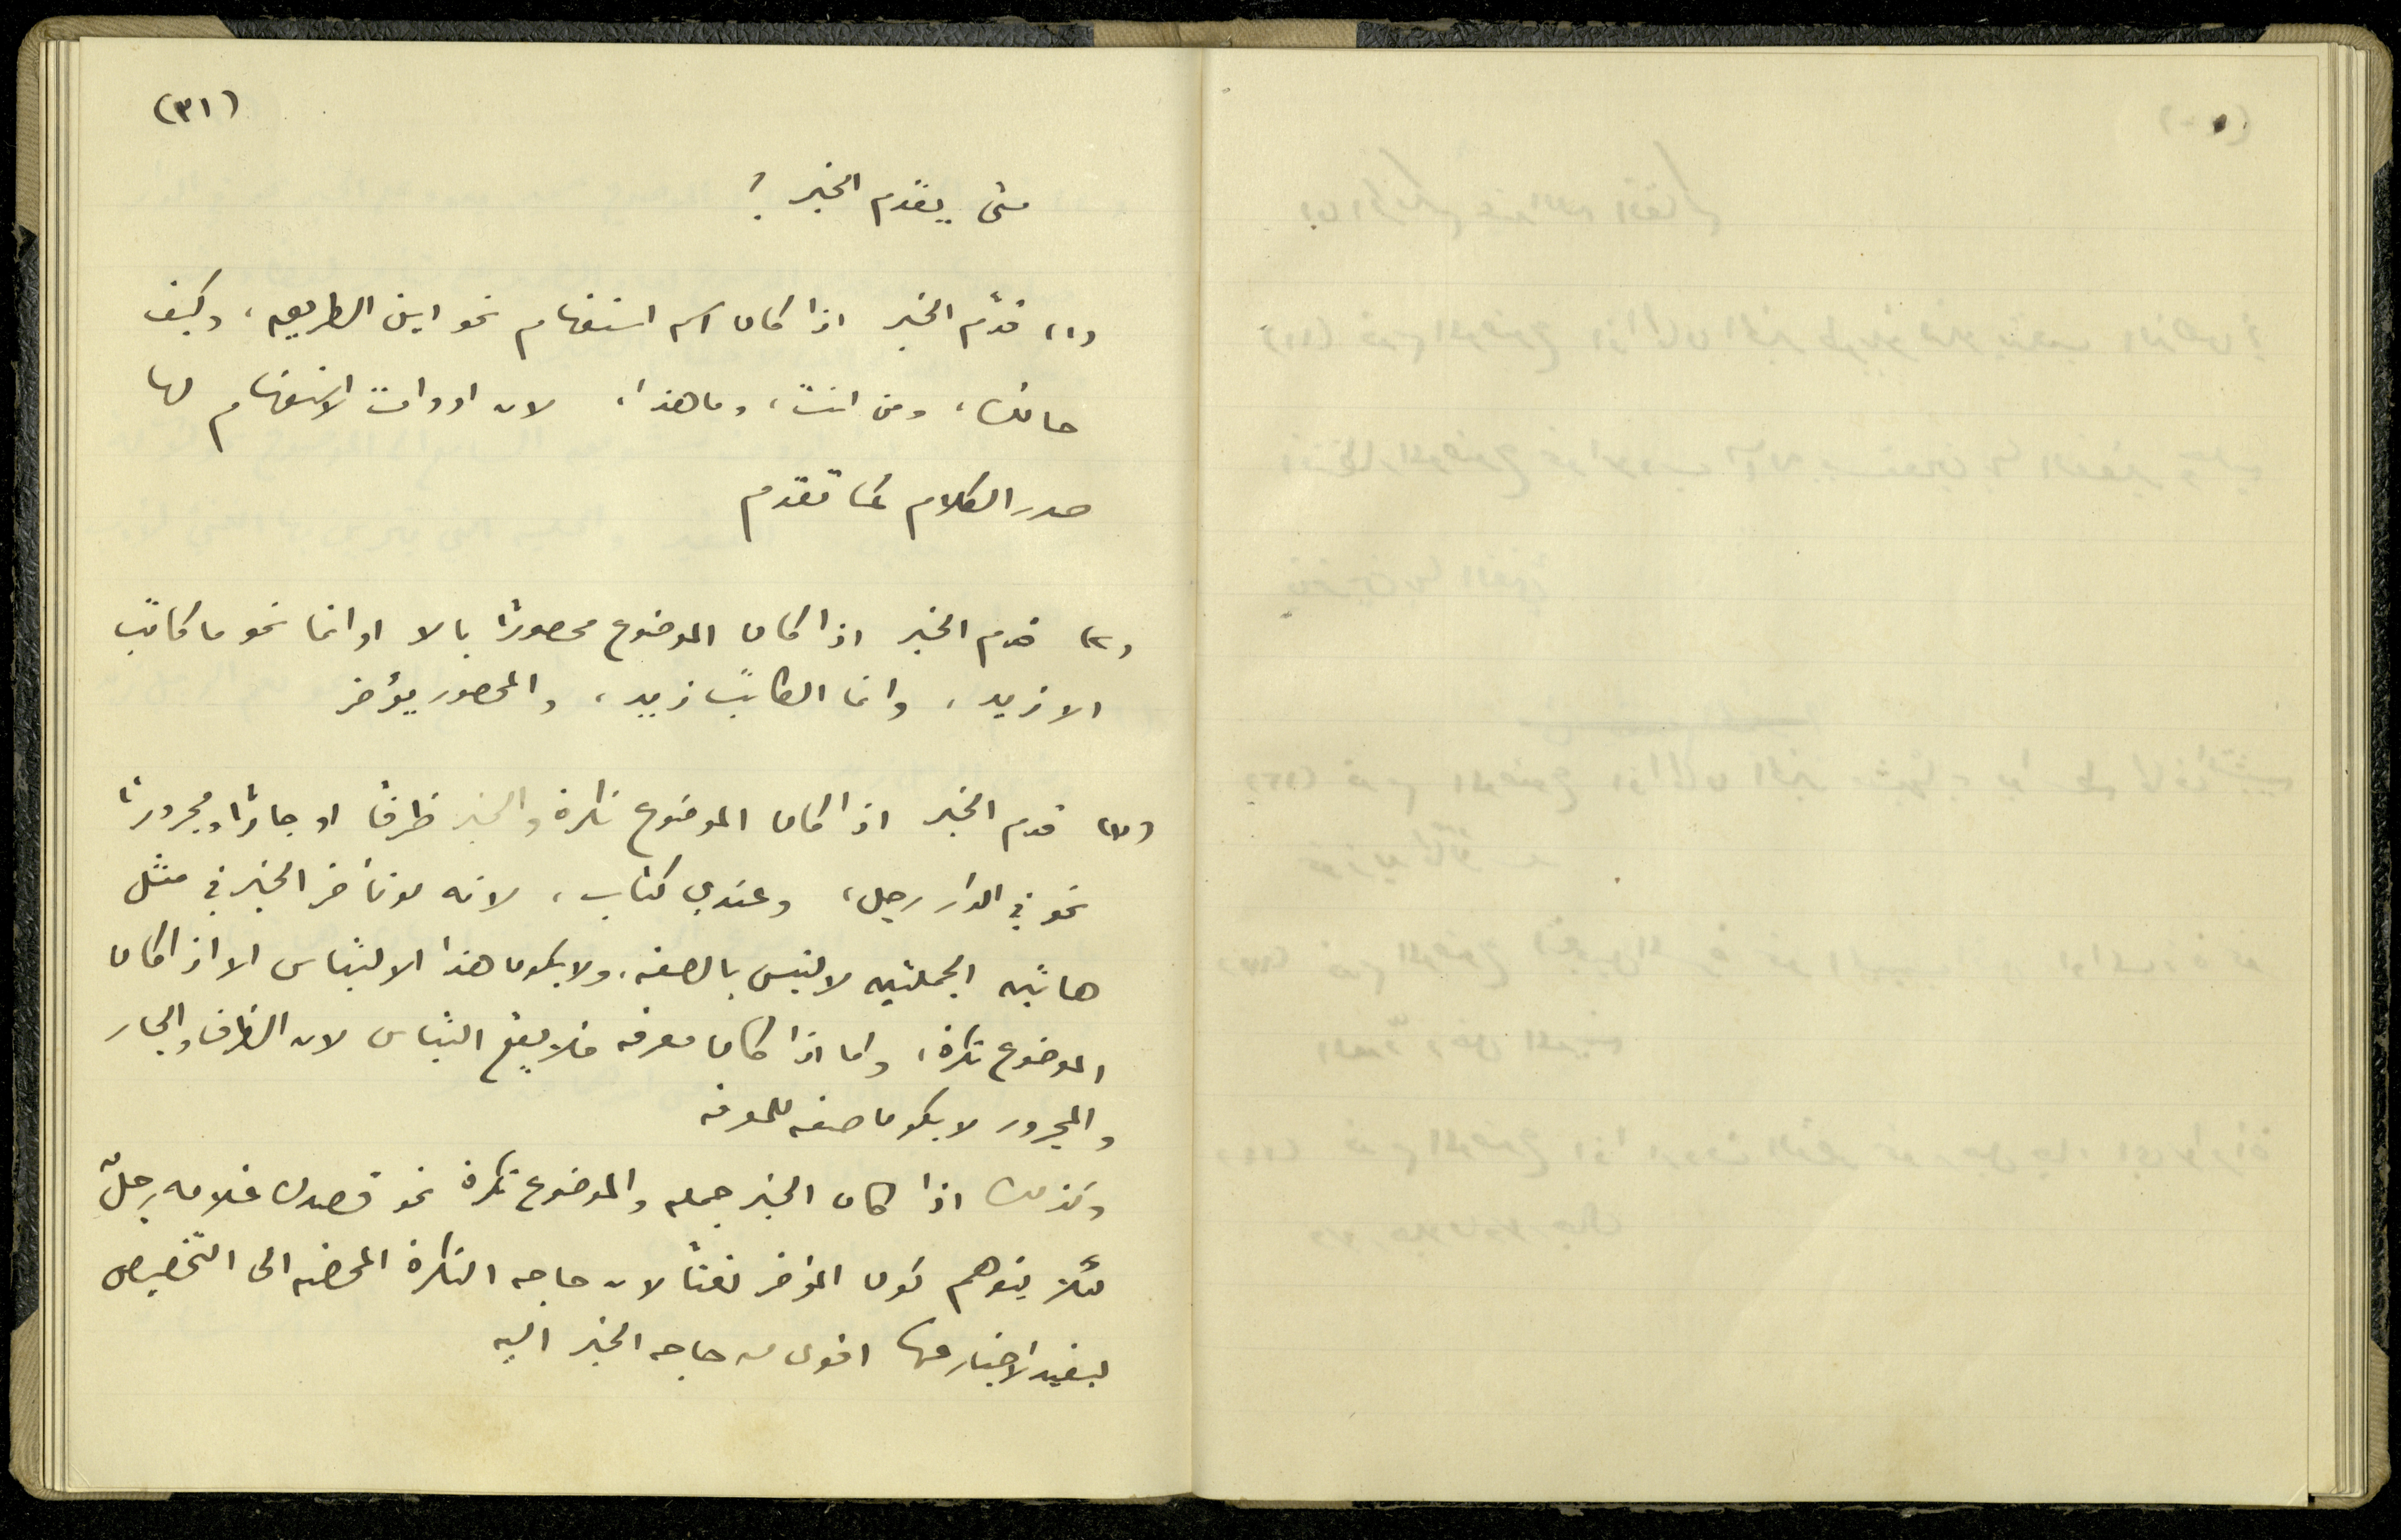 (٣١)
متى يقدم الخبر ؟
(١) قدّم الخبر اذا كان اسم استفهام نحو اين الطريق، وكيف
حالك، ومن انت، وما هذا، لان ادوات الاستفهام لها
صدر الكلام كما تقدم
(٢) قدم الخبر اذا كان الموضوع محصورًا بالا او انما نحو ما كاتب
الا زيد، وانما الكاتب زيد، والمحصور يؤخر
(٣) قدم الخبر اذا كان الموضوع نكرة والخبر ظرفًا او جارًا ومجرورًا
نحو في الدار رجل، وعندي كتاب، لانه لو تأخر الخبر في مثل
هاتين الجملتين لالتبس بالصفه، ولا يكون هذا الالتباس الا اذا كان
الموضوع نكرة، واما اذا كان معرفه فلا يقع التباس لان الظرف والجار
والمجرور لا يكون صفه للمعرفه
وكذلك اذا كان الخبر جمله والموضوع نكرة نحو قصدك غلامه رجلٌ
لئلا يتوهم كون المؤخر نعتًا لان حاجه النكرة المحضه الى التخصيص
ليفيد الاخبار عنها اقوى من حاجه الخبر اليه